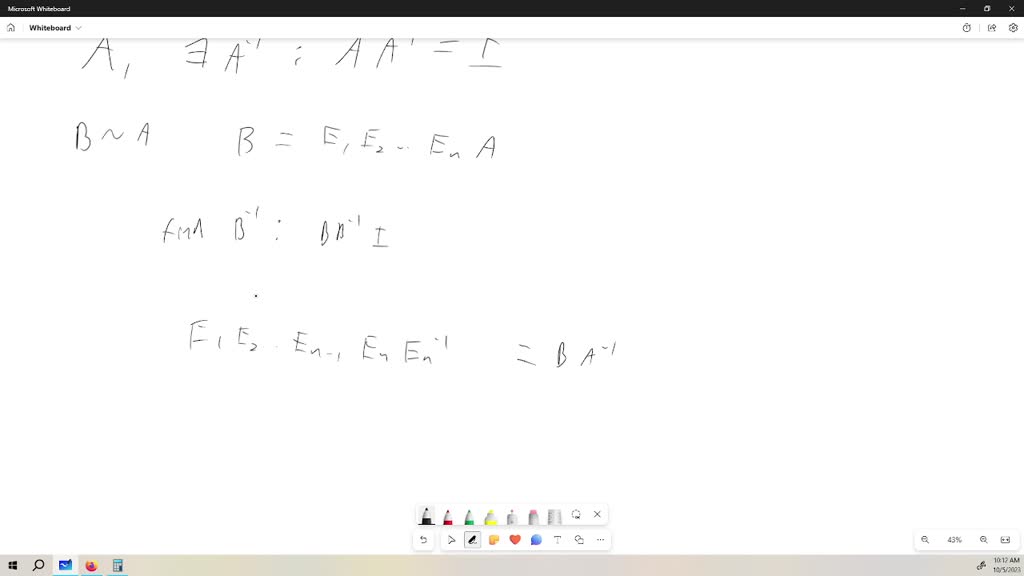 Microsoft Whiteboard
Whiteboard
A, ∃ A⁻¹ : A A⁻¹ = I
B ~ A B = E₁ E₂ .. Eₙ A
find B⁻¹ : BB⁻¹ I
E₁ E₂ .. Eₙ₋₁ Eₙ Eₙ⁻¹ = B A⁻¹
43%
10:12 AM
10/5/2023